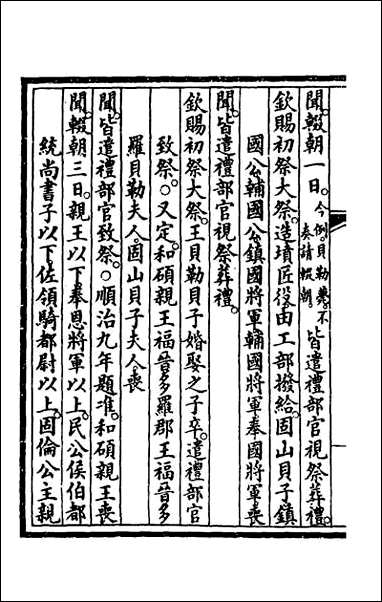 聞。輟朝一日。今例。貝勒薨。不奏請輟朝皆遣禮部官視祭葬禮。
欽賜初祭大祭。造墳匠役由工部撥給。固山貝子鎮
國公輔國公鎮國將軍輔國將軍奉國將軍喪
聞。皆遣禮部官視祭葬禮。
欽賜初祭大祭。王貝勒貝子婚娶之子卒。遣禮部官
致祭。○又定。和碩親王福晉多羅郡王福晉多
羅貝勒夫人。固山貝子夫人。喪
聞。皆遣禮部官致祭。○順治九年題准。和碩親王喪
聞。輟朝三日。親王以下。奉恩將軍以上。民公侯伯都
統尚書子以下。佐領騎都尉以上。固倫公主親